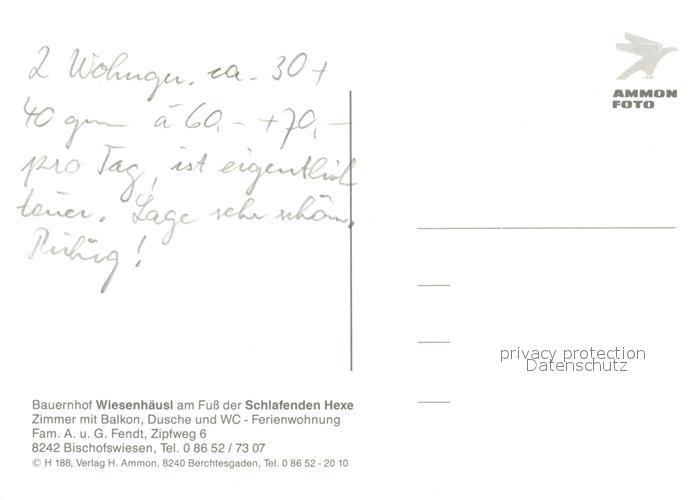 2 Wohngen. ca. 30 +
40 qm à 60,- + 70,-
pro Tag, ist eigentlich
teuer. Lage sehr schön,
Ruhig!
AMMON
FOTO
privacy protection
Datenschutz
Bauernhof Wiesenhäusl am Fuß der Schlafenden Hexe
Zimmer mit Balkon, Dusche und WC - Ferienwohnung
Fam. A. u. G. Fendt, Zipfweg 6
8242 Bischofswiesen, Tel. 0 86 52 / 73 07
© H 188, Verlag H. Ammon, 8240 Berchtesgaden, Tel. 0 86 52 - 20 10